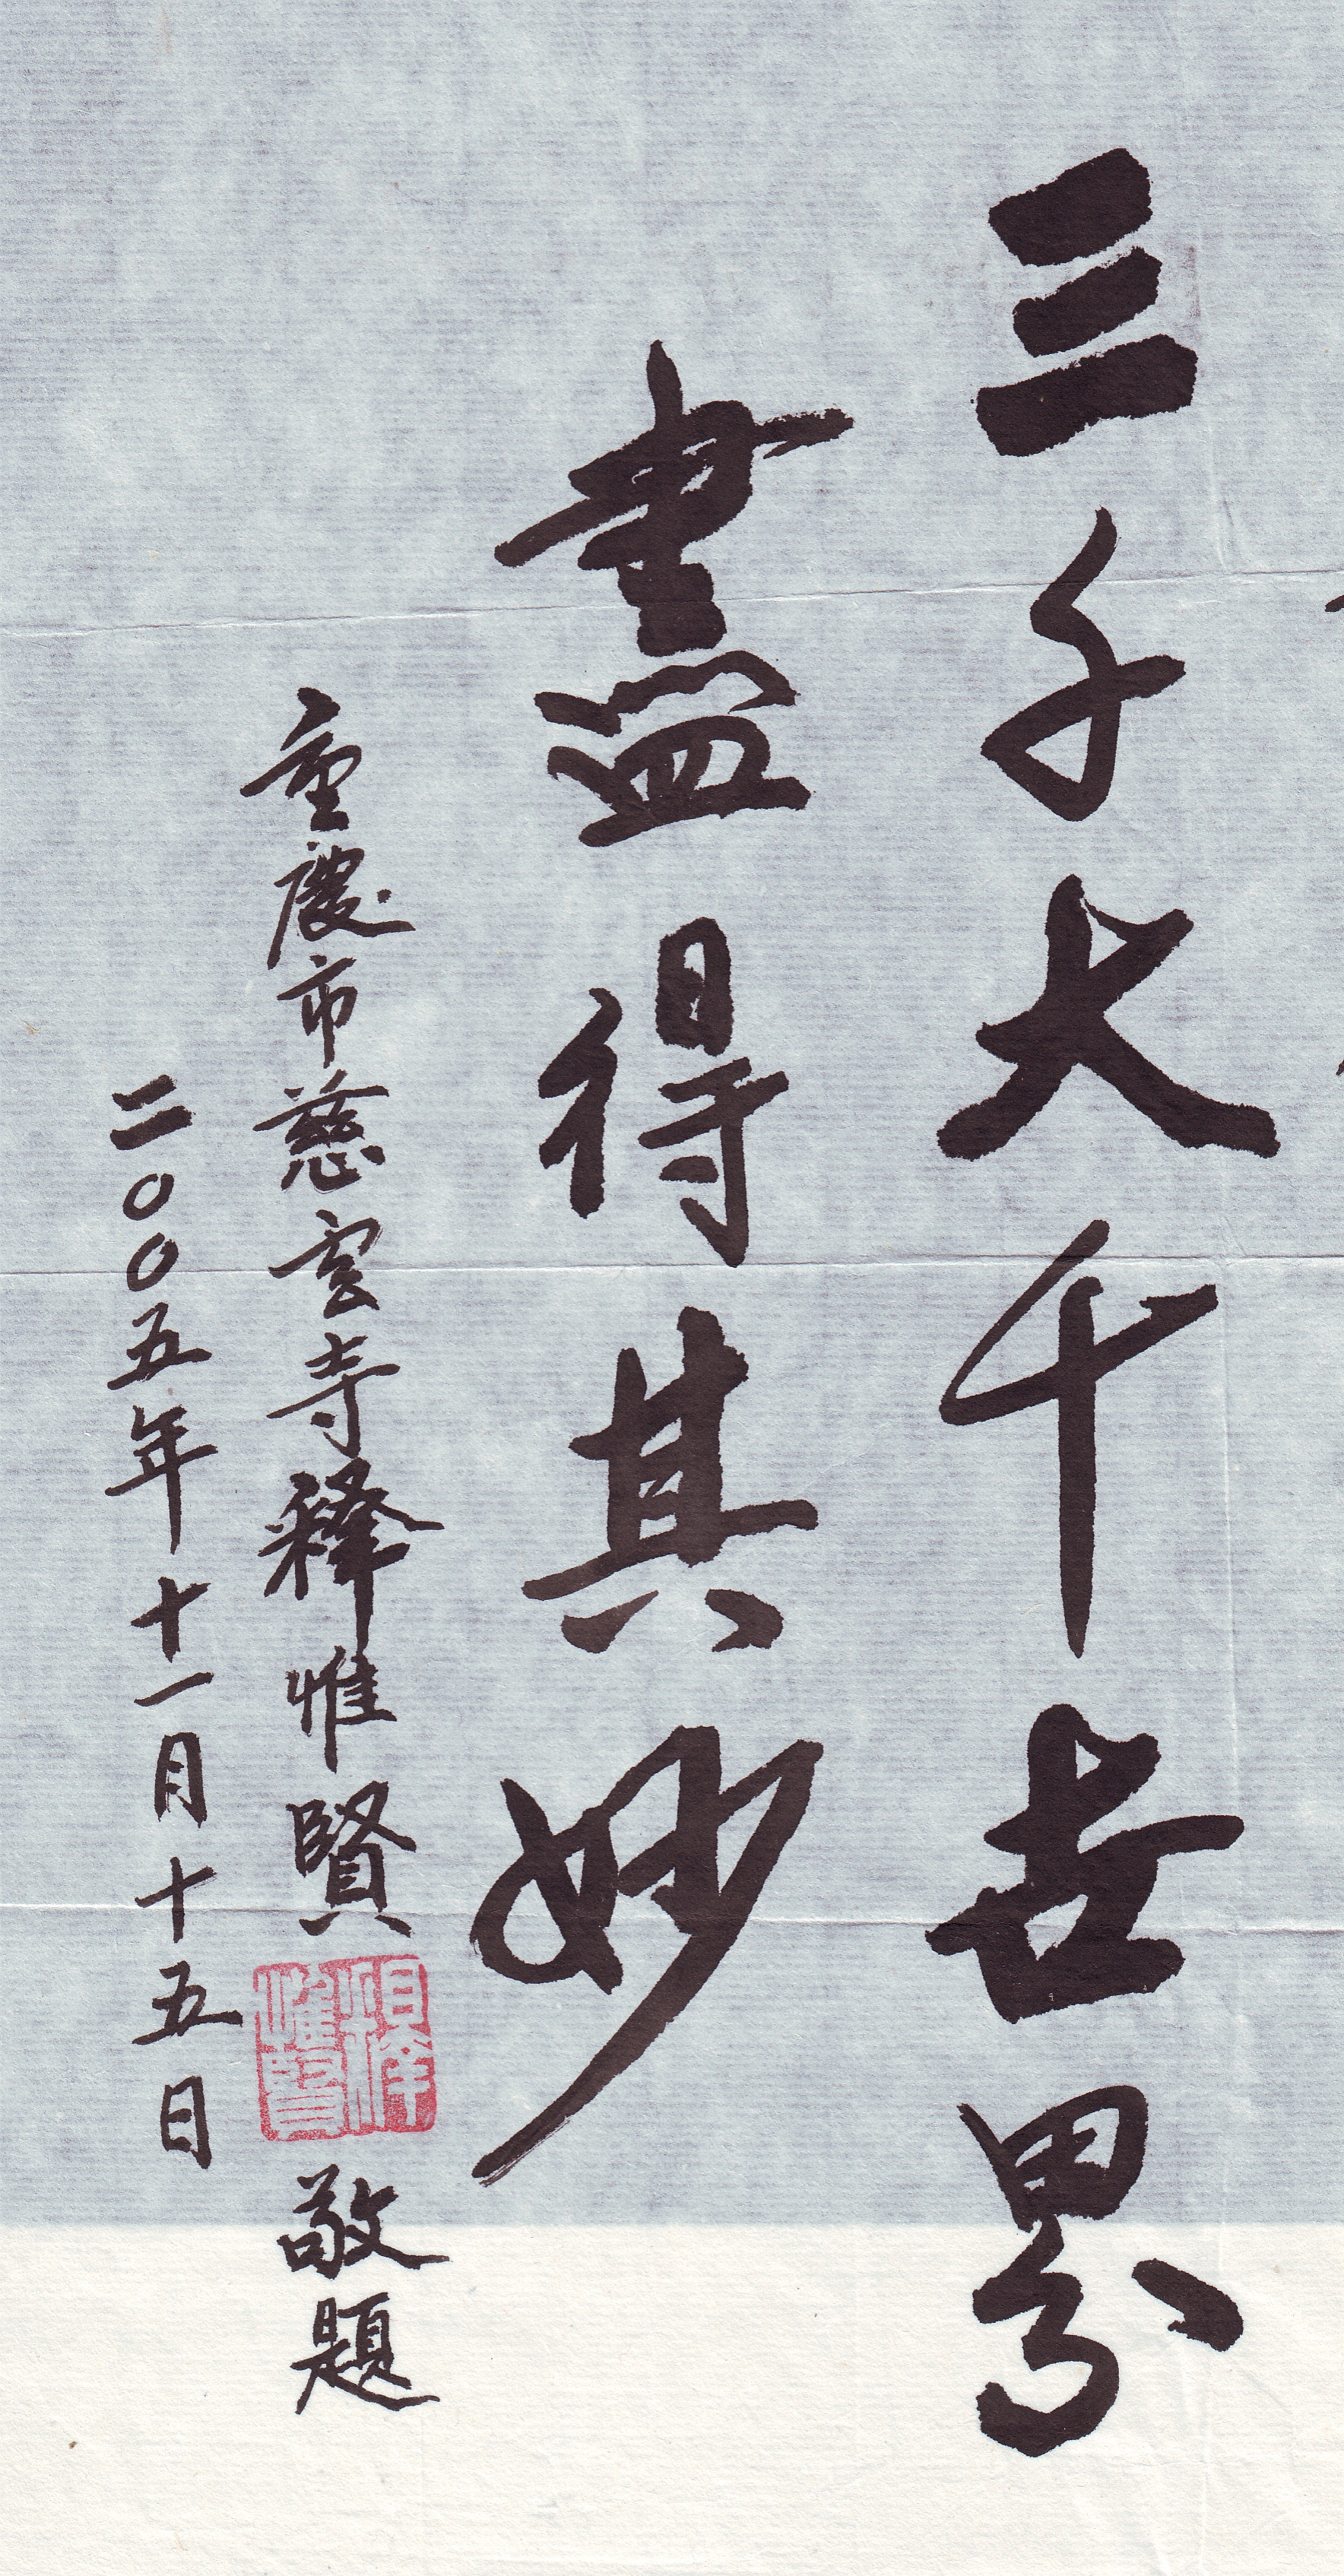 三千大千世界
盡得其妙
重慶市慈雲寺釋惟賢 敬題
二00五年十一月十五日